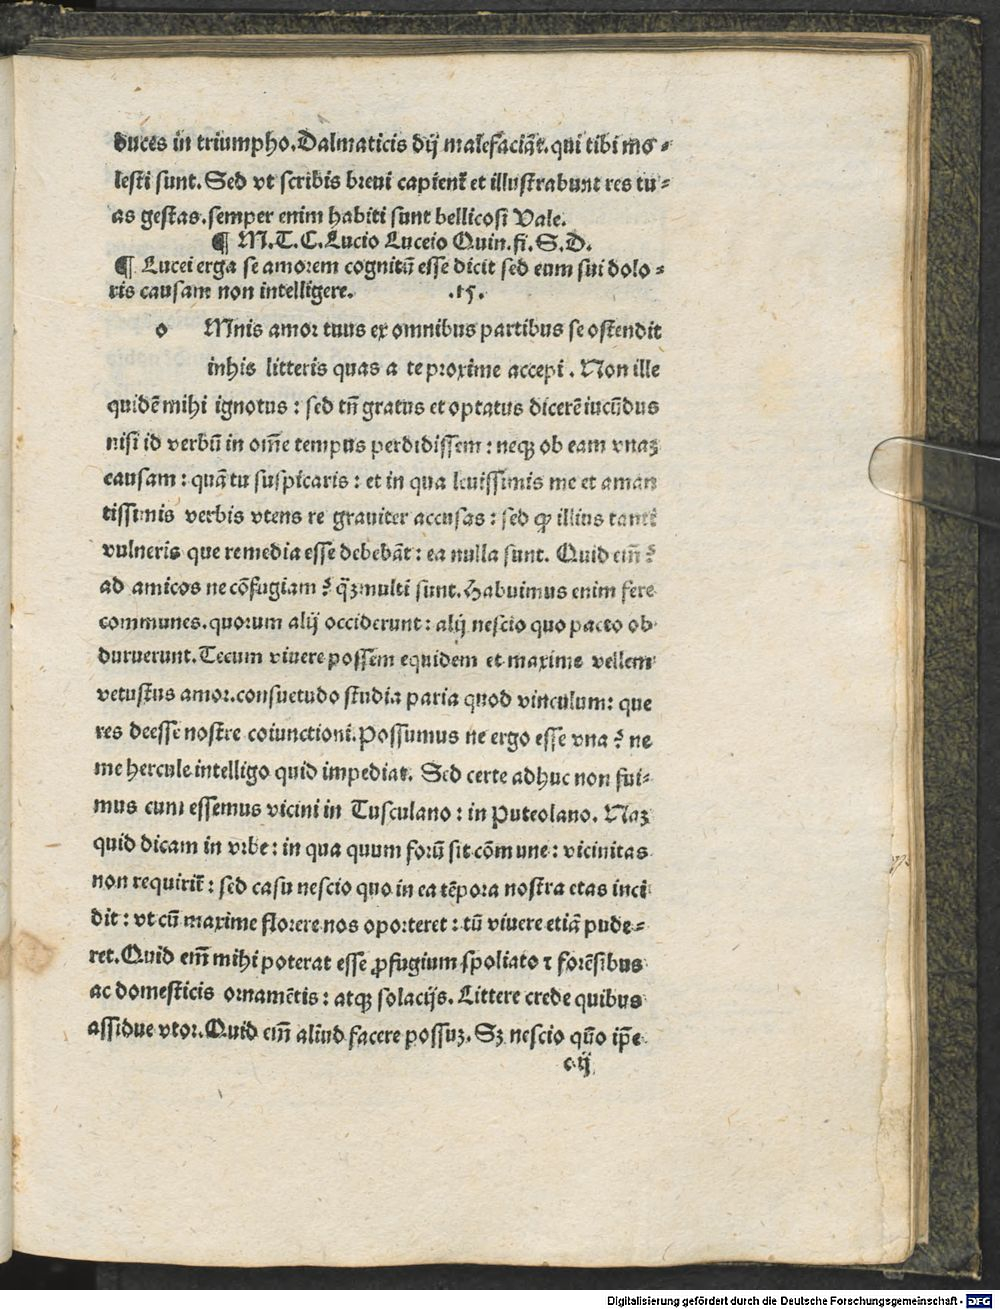 duces in triumpho. Dalmaticis dij malefaciãt. qui tibi mo⸗
lesti sunt. Sed vt scribis breui capient̃ et illustrabunt res tu⸗
as gestas. semper enim habiti sunt bellicosi Vale.
¶ M. T. C. Lucio Luceio Quin. fi. S. D.
¶ Lucei erga se amorem cognitũ esse dicit sed eum sui dolo⸗
ris causam non intelligere. .15.
o Mnis amor tuus ex omnibus partibus se ostendit
inhis litteris quas a te proxime accepi. Non ille
quidẽ mihi ignotus : sed tñ gratus et optatus dicerẽ iucũdus
nisi id verbũ in om̃e tempus perdidissem : neqꝫ ob eam vnaꝫ
causam : quã tu suspicaris : et in qua leuissimis me et aman
tissimis verbis vtens re grauiter accusas : sed ꝙ illius tanti
vulneris que remedia esse debebãt : ea nulla sunt. Quid em̃ ?
ad amicos ne cõfugiam ? q̃ꝫ multi sunt. Habuimus enim fere
communes. quorum alij occiderunt : alij nescio quo pacto ob
duruerunt. Tecum viuere possem equidem et maxime vellem
vetustus amor. consuetudo studia paria quod vinculum : que
res deesse nostre coiunctioni. Possumus ne ergo esse vna ? ne
me hercule intelligo quid impediat. Sed certe adhuc non fui⸗
mus cum essemus vicini in Tusculano : in Puteolano. Naꝫ
quid dicam in vrbe : in qua quum forũ sit cõmune : vicinitas
non requirit̃ : sed casu nescio quo in ea tẽpora nostra etas inci
dit : vt cũ maxime florere nos oporteret : tũ viuere etiã pude⸗
ret. Quid em̃ mihi poterat esse ꝓfugium spoliato ⁊ forẽsibus
ac domesticis ornamẽtis : atqꝫ solacijs. Littere crede quibus
assidue vtor. Quid em̃ aliud facere possuꝫ. Sꝫ nescio quõ ip̃e
c ij
Digitalisierung gefördert durch die Deutsche Forschungsgemeinschaft - DFG